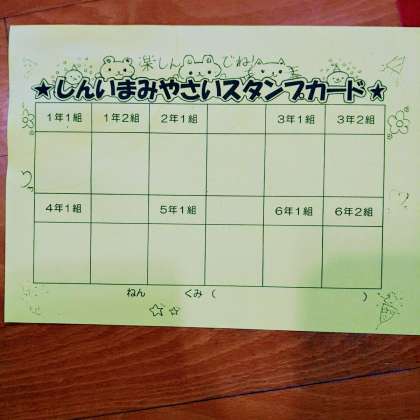 楽しんでね!
★しんいまみやさいスタンプカード★
1年1組 1年2組 2年1組 3年1組 3年2組
4年1組 5年1組 6年1組 6年2組
ねん くみ ( )